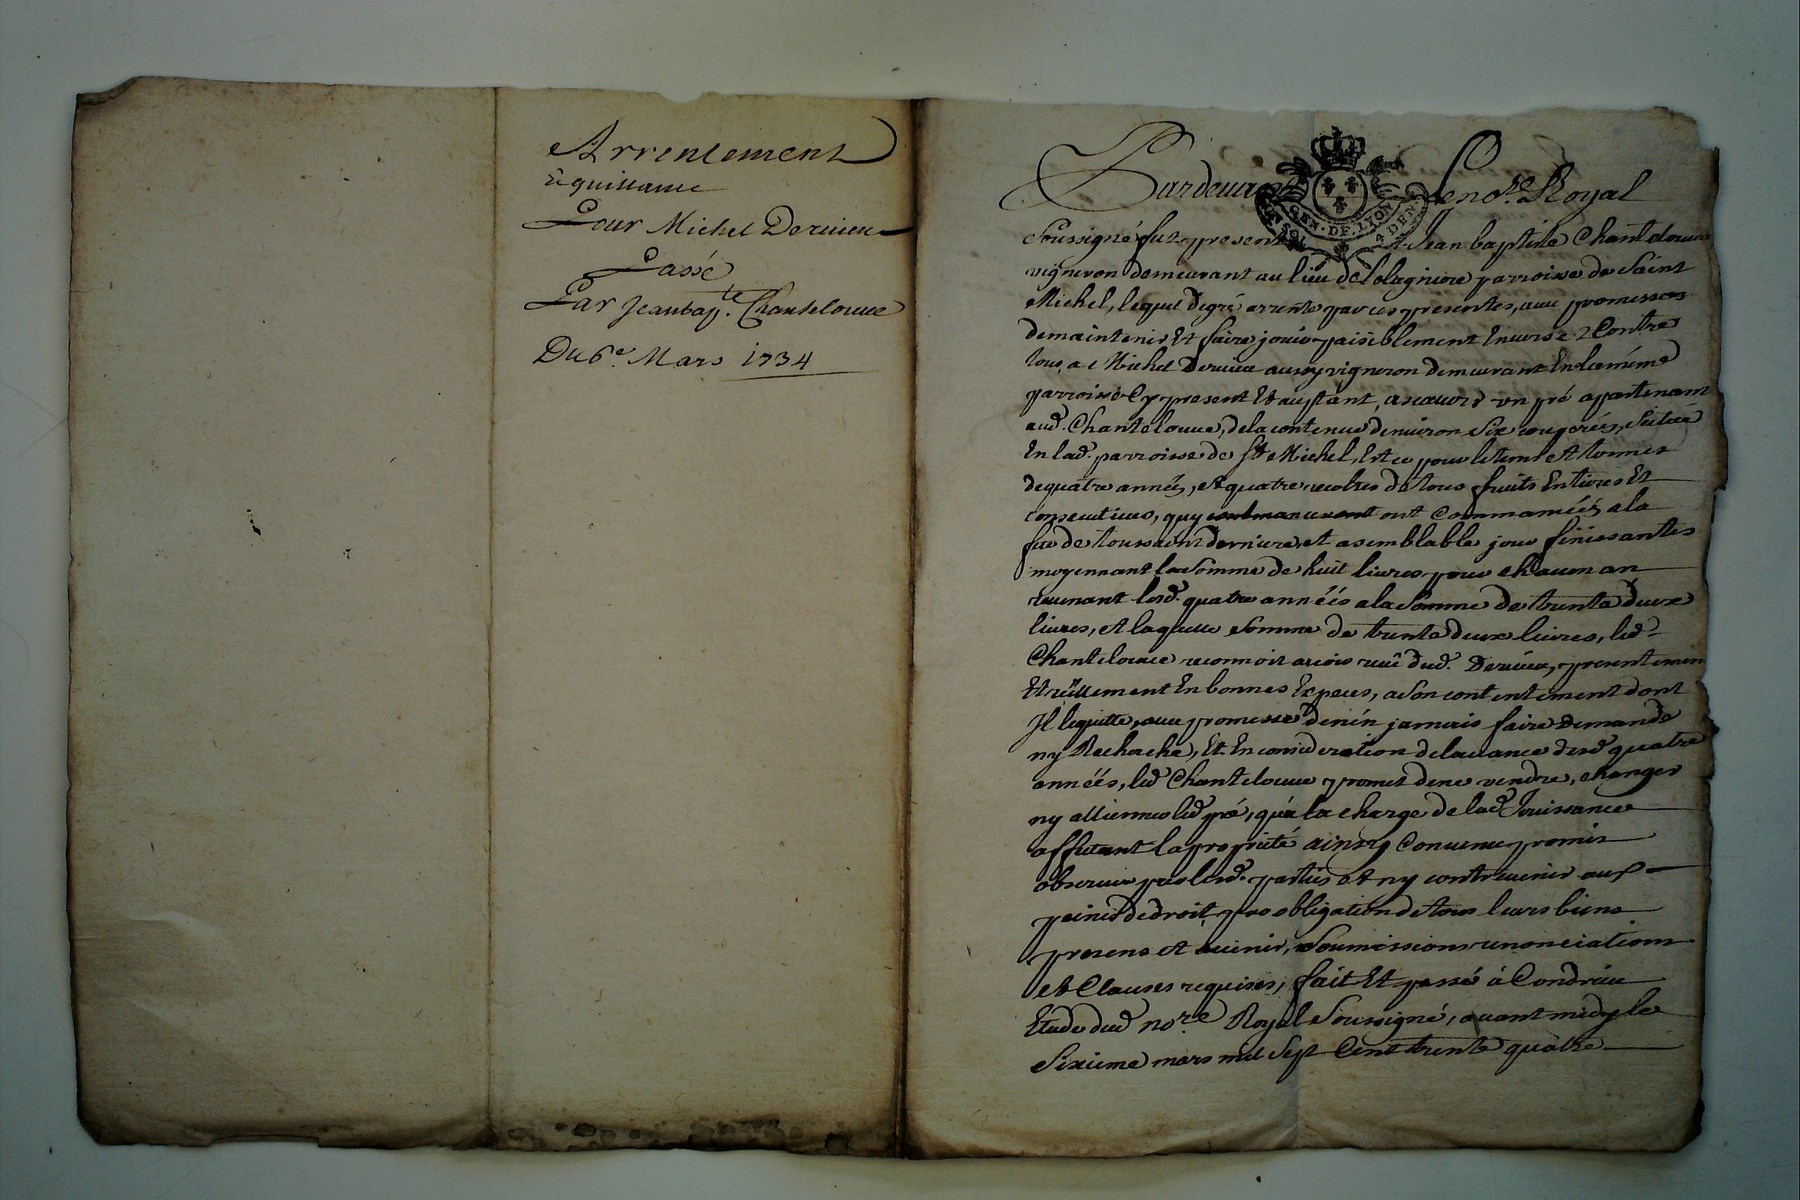 Arrentement
& quittance
Pour Michel Derieu
Passé
Par Jean bap.te Chantelouve
Du 6e. Mars 1734
Pardevant Le no.re Royal
GEN. DE. LYON
4 DEN
Soussigné fut present Jean baptiste Chantelouve
vigneron demeurant au lieu de parroisse de Saint
Michel, lequel de gré arrente par ces presentes, avec promesses
de maintenir Et faire jouir paisiblement Envers & Contre
tous, a Michel Derieu aussy vigneron demeurant En la meme
parroisse Cy present Et aceptant, ascavoir un pré apartenant
aud. Chantelouve, de la contenue denviron Six , Scitué
En lad. parroisse de St Michel, Et ce pour le tems Et termes
de quatre années, et quatre recoltes de tous fruits Entieres Et
consecutives, quy ont Commancées a la
fete de toussaint derniere, et a semblable jour finissantes
moyennant la Somme de huit livres pour chacun an
revenant lesd. quatre années a la Somme de trente deux
livres, Et laquelle Somme de trente deux livres, led.
Chantelouve reconnoit avoir reçu dud. Derieu, presentement
Et réellement En bonnes Especes, a Son contentement dont
Il le quitte, avec promesse de nen jamais faire Demande
ny Recherche, Et En consideration de lavance desd. quatre
années, led. Chantelouve promet de ne vendre, changer
ny alliener led. pré, qu'a la charge de lad. Jouissance
affectant la proprieté ainsy Convenu promis
observer par lesd. parties et ny contrevenir aux
peines de droit, par obligation de tous leurs biens
presens et avenir, Soumissions renonciations
et Clauses requises, fait Et passé à Condrieu
Etude dud. no.re Royal Soussigné, avant midy le
Sixieme mars mil Sept Cent trente quatre